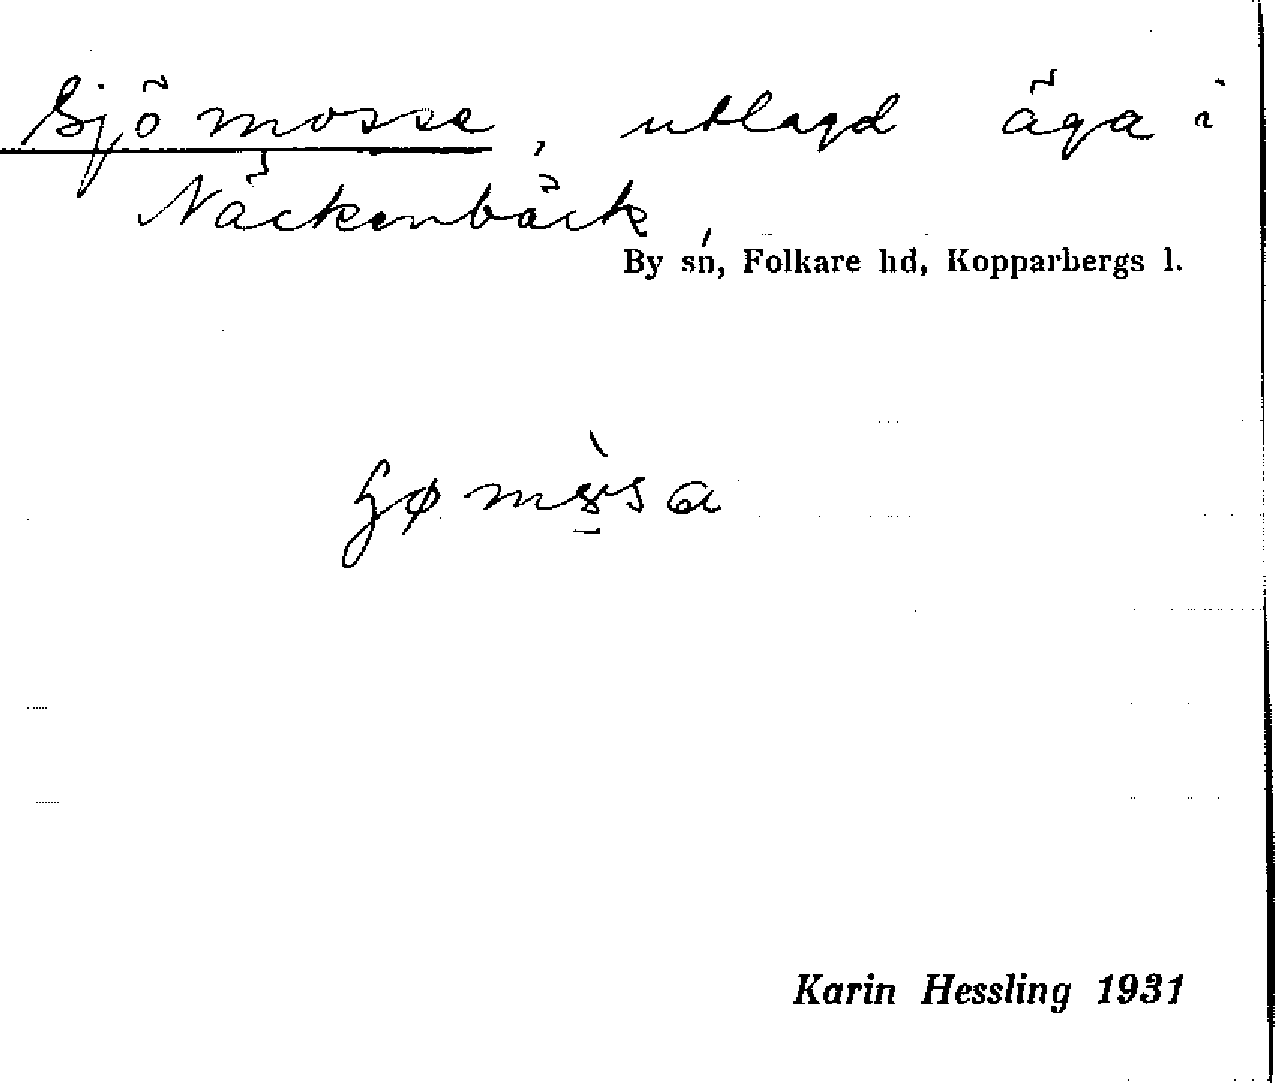 Sjömosse, utlagd äga i
Näckenbäck,
By sn, Folkare hd, Kopparbergs l.
Karin Hessling 1931